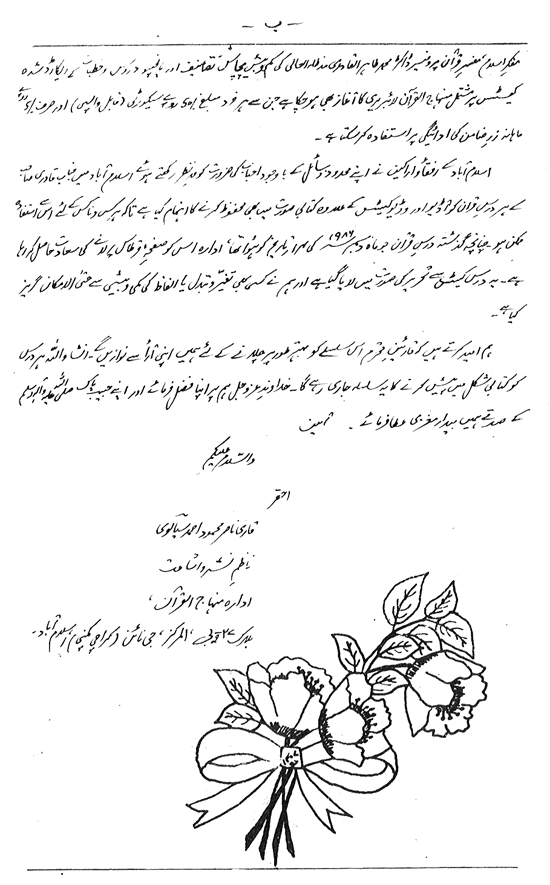 - ب -
مفکر اسلام مفسر قرآن پروفیسر ڈاکٹر محمد طاہر القادری مدظلہ العالی کی کم و بیش پچاس تصانیف اور دروس و خطبات ریکارڈ شدہ
کیسٹس پر مشتمل منہاج القرآن لائبریری کا آغاز بھی ہو چکا ہے جن سے ہر فرد مبلغ روپے سیکورٹی (قابل واپسی) اور صرف
ماہانہ زر ضامن کی ادائیگی پر استفادہ کر سکتا ہے۔
اسلام آباد کے رفقاء و اراکین نے اپنے محدود وسائل کے باوجود احباب کی ضرورت کو مدنظر رکھتے ہوئے اسلام آباد میں جناب قادری صاحب
کے ہر درس قرآن کو آڈیو اور وڈیو کیسٹس کے علاوہ کتابی صورت میں بھی محفوظ کرنے کا اہتمام کیا ہے تاکہ ہر کس و ناکس کے لئے اس سے استفادہ
ممکن ہو۔ چنانچہ گذشتہ درس قرآن جو ماہ دسمبر ۱۹۸۶ کی تاریخ کو ہوا تھا، ادارہ اس کو صفحہ قرطاس پر لانے کی سعادت حاصل کر رہا
ہے۔ یہ درس کیسٹ سے تحریر کی صورت میں لایا گیا ہے اور ہم نے کسی بھی تغیر و تبدل یا الفاظ کی کمی و بیشی سے حتی الامکان گریز
کیا ہے۔
ہم امید کرتے ہیں کہ قارئین محترم اس سلسلے کو بہتر طور پر چلانے کے لئے ہمیں اپنی آراء سے نوازیں گے۔ انشاء اللہ ہر درس
کو کتابی شکل میں پیش کرنے کا یہ سلسلہ جاری رہے گا۔ خداوند عزوجل ہم پر اپنا فضل فرمائے اور اپنے حبیب پاک صلی اللہ علیہ وآلہ وسلم
کے صدقے ہمیں بیدار مغزی عطا فرمائے۔ آمین
والسلام علیکم
احقر
قاری ناصر محمود احمد سیالوی
ناظم نشر و اشاعت
ادارہ منہاج القرآن،
بلاک ۲۷ بی، المرکز، جی نائن (کراچی کمپنی) اسلام آباد۔